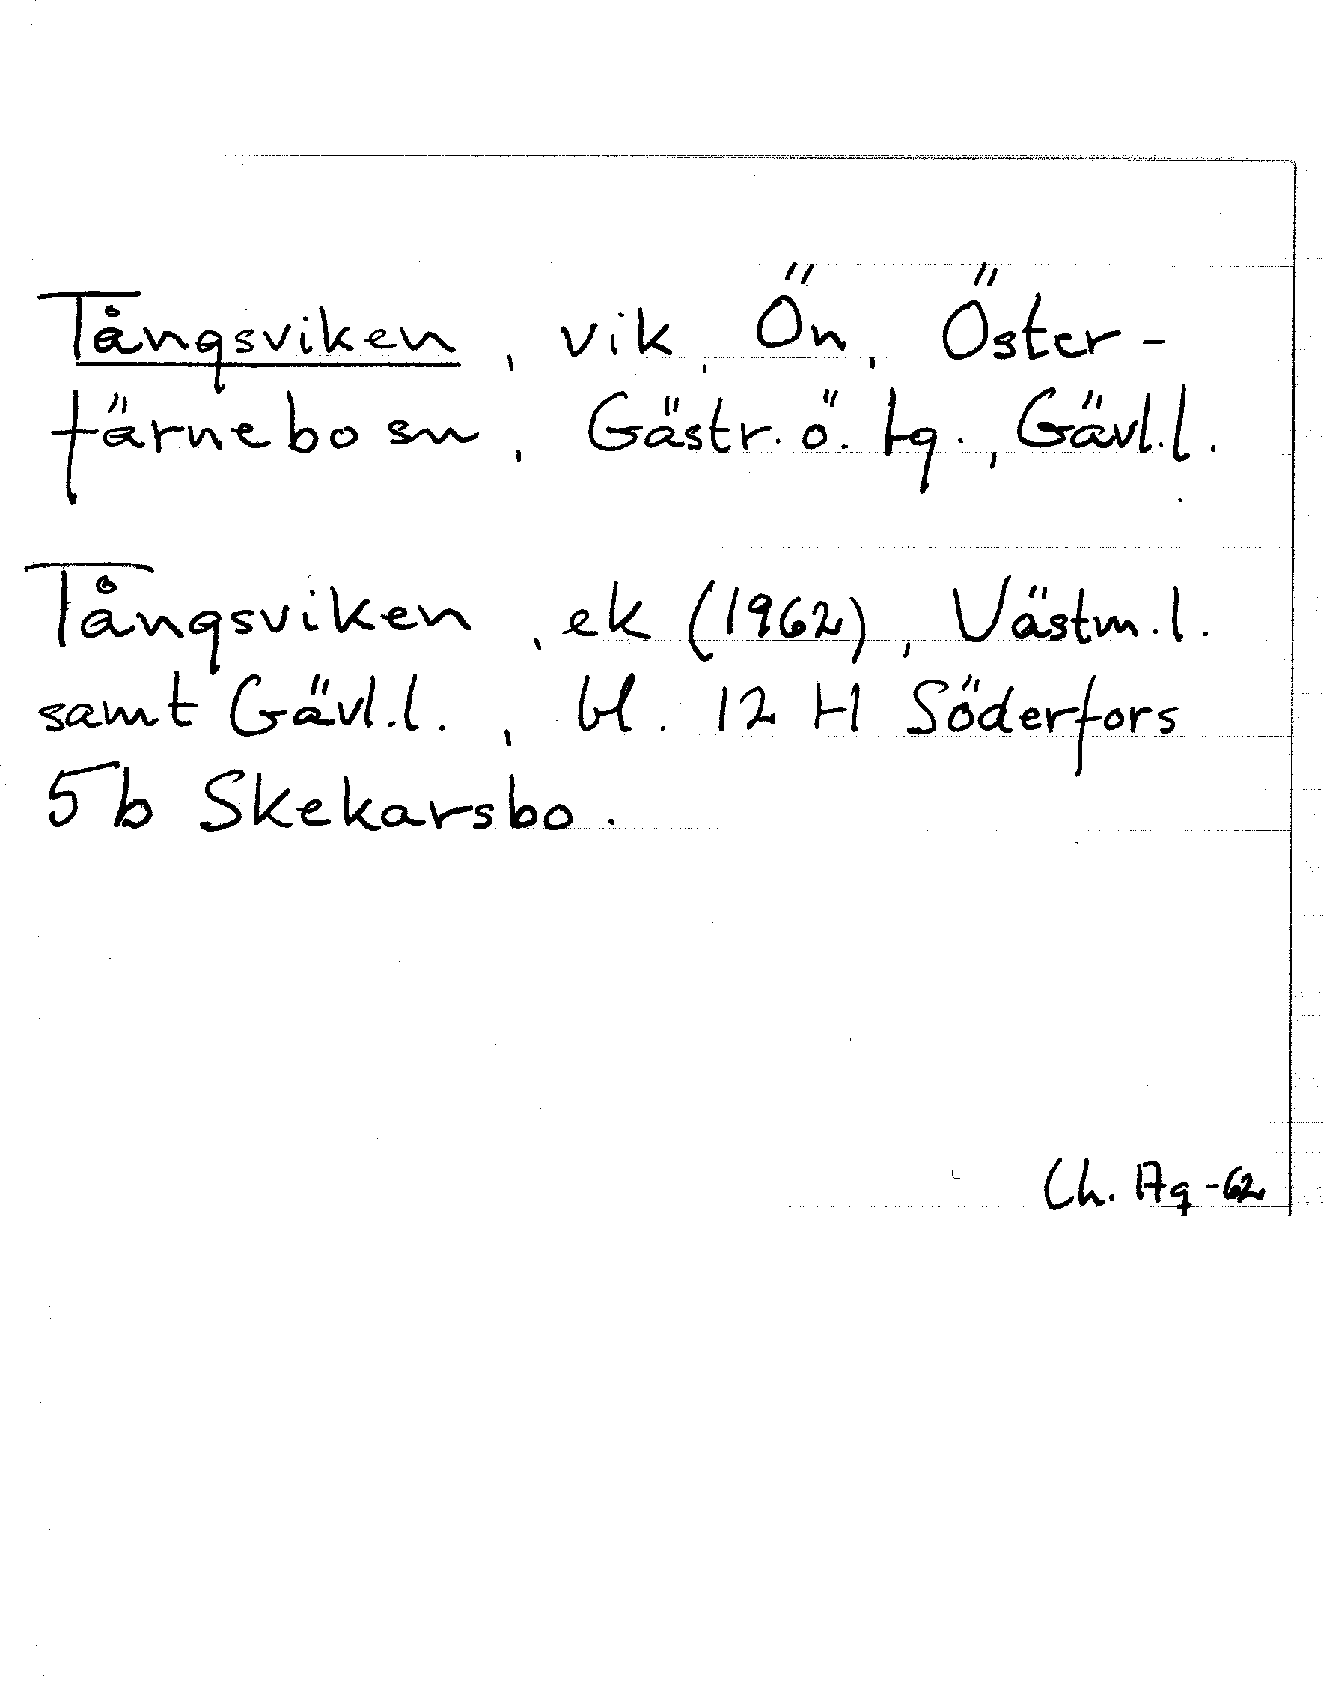 Tångsviken, vik, Ön, Öster-
färnebo sn, Gästr. ö. tg., Gävl.l.
Tångsviken, ek (1962), Västm.l.
samt Gävl.l., bl. 12 H Söderfors
5b Skekarsbo.
Ch. Ag -62